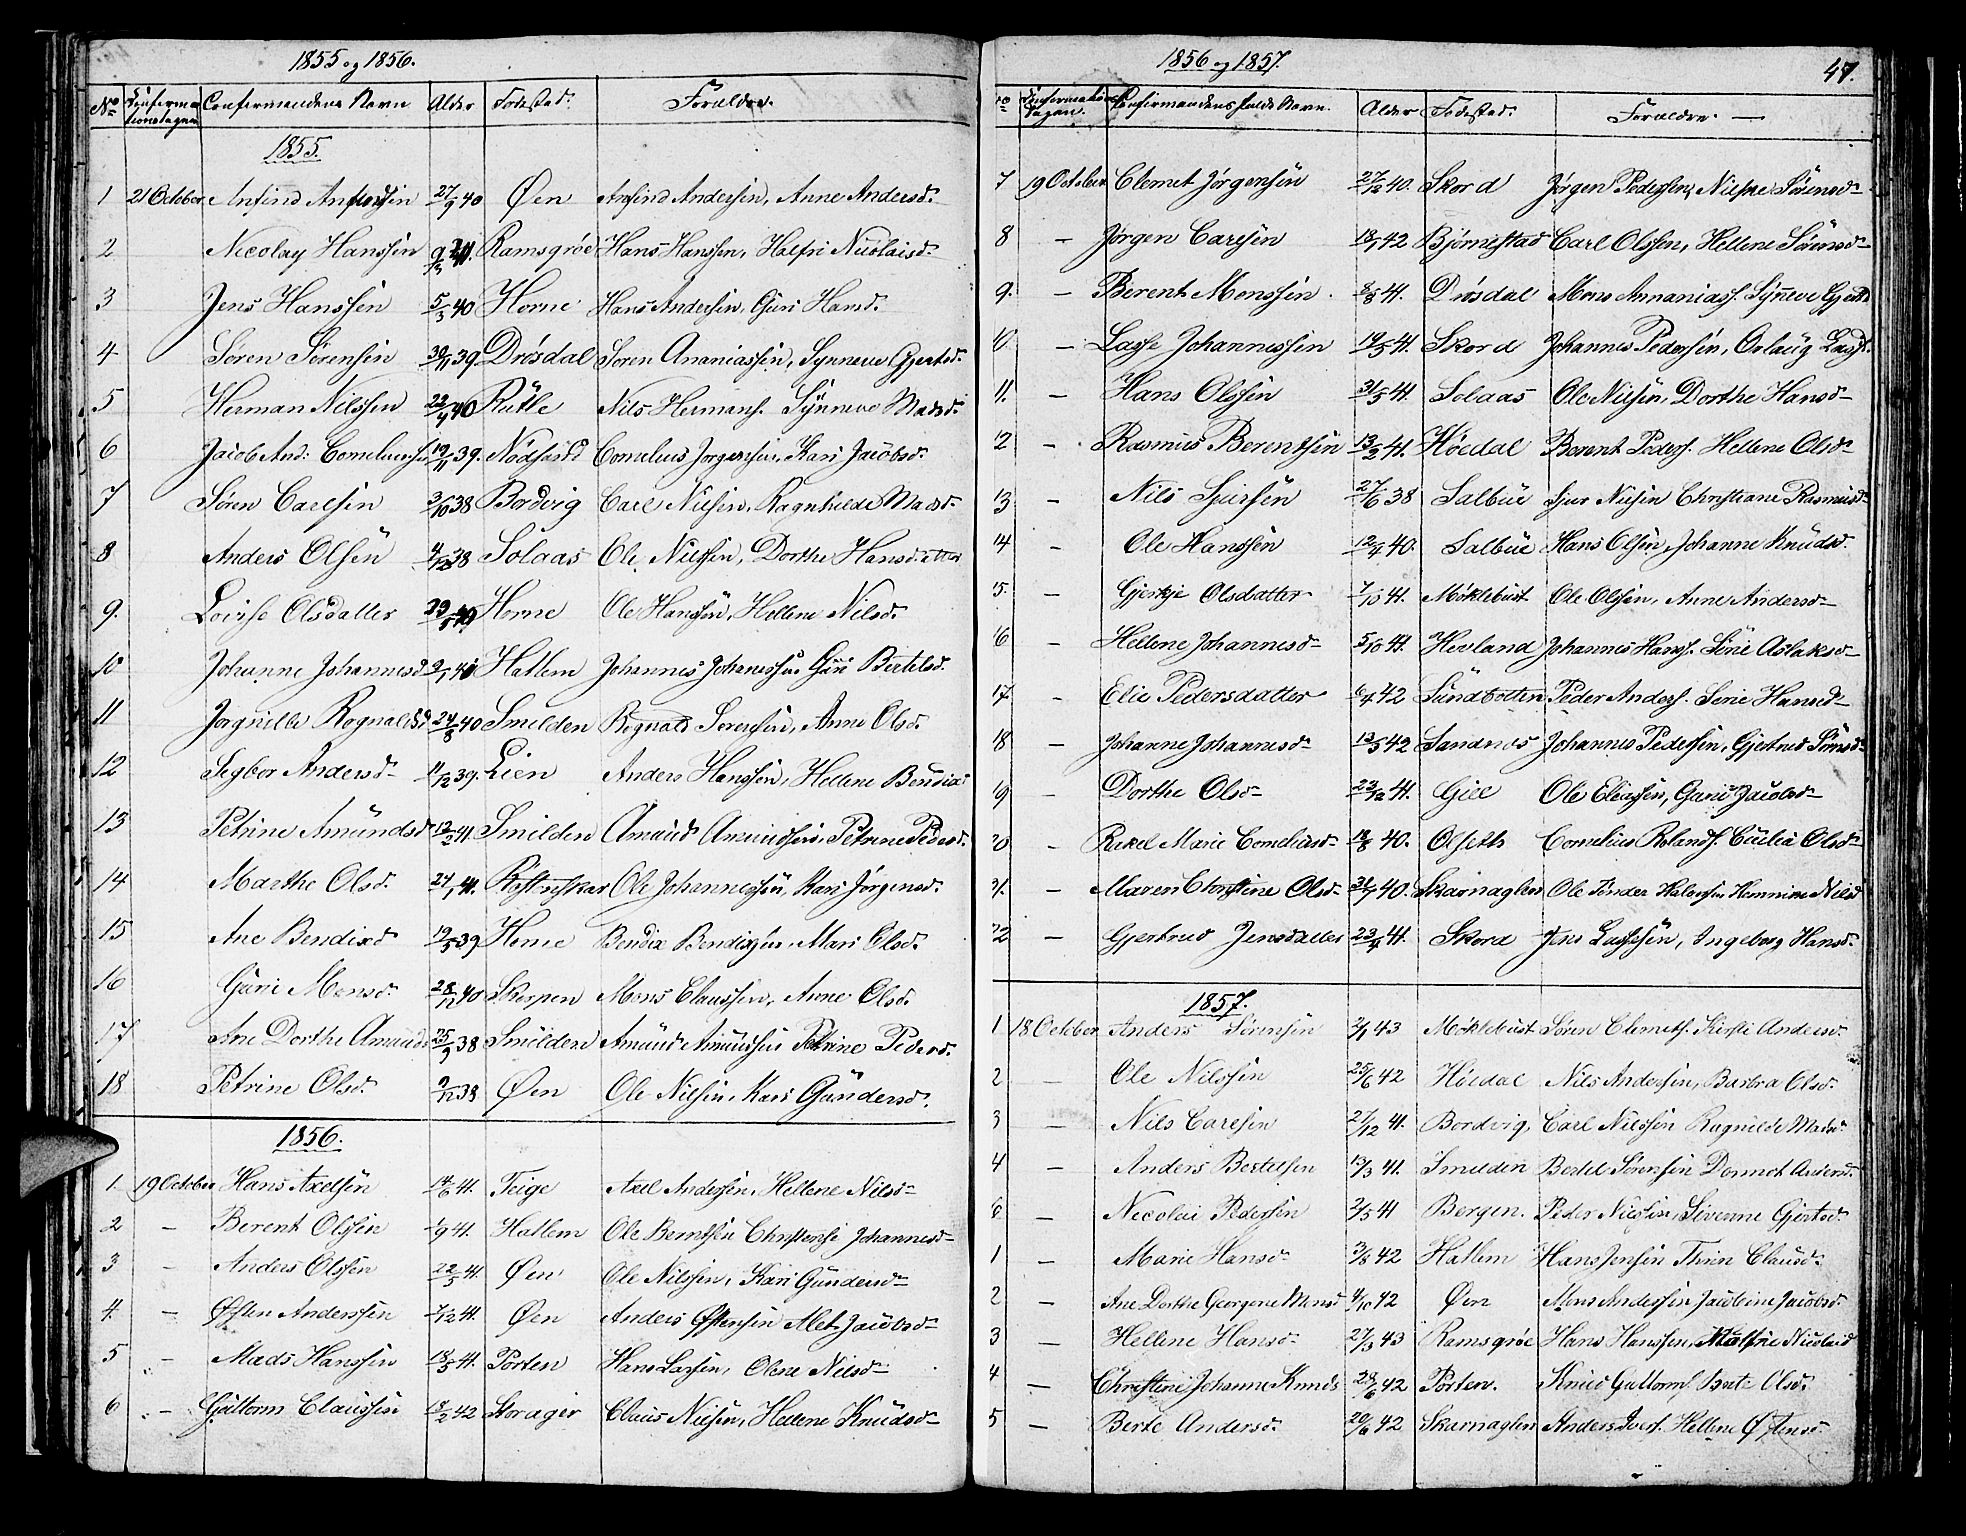 1855 og 1856.
No Confirmationsdagen Confirmandens Navn Alder Fødested. Forældre.
1855.
1 21 October Anfind Anfindsen 27/9 40 Øen Anfind Andersen, Anne Andersd.
2 Nicolay Hanssen 9/3 41. Ramsgrøe Hans Hanssen, Halfri Nicolaisd.
3 Jens Hanssen 5/3 40 Horne Hans Anderssen, Guri Hansd.
4 Søren Sørensen 30/11 39. Drøsdal Søren Ananiassen, Synneve Gjertsd.
5 Herman Nilssen 23/4 40 Rutle Nils Hermans. Synneve Madsd.
6 Jacob And: Corneliussen 19/11 39. Nødseth Cornelius Jørgensen, Kari Jacobsd.
7 Søren Carlsen 3/10 38 Bordvig Carl Nilsen, Ragnhilde Madsd.
8 Anders Olsen 4/12 38 Solaas Ole Nilssen, Dorthe Hansdatter
9. Lovise Olsdatter 23/5 40 Horne Ole Hanssen, Hellene Nilsd.
10 Johanne Johannesd 2/1 40 Hatlem Johannes Johanessen Guri Bertelsd.
11 Jorgnille Rognaldsd 24/8 40 Smilden Rognald Sørensen, Anne Olsd.
12 Segbor Andersd 11/12 39. Lien Anders Hanssen, Hellene Bendixd
13 Petrine Amundsd 12/2 41. Smilden Amund Amundsen, Petrine Pedersd.
14 Marthe Olsd. 24/1 41. Ole Johannessen, Kari Jørgensd.
15 Ane Bendixd 19/5 39 Horne Bendix Bendixsen, Mari Olsd.
16 Guri Monsd. 28/12 40 Skorpen Mons Claussen, Anne Olsd.
17 Ane Dorthe Amunds 25/9 38 Smilden Amund Amundsen Petrine Pedersd.
18 Petrine Olsd. 9/12 38 Øen Ole Nilsen, Kari Gundersd.
1856.
1 19 October Hans Axelsen 14/6 41. Teige Axel Andersen, Hellene Nilsd
2 - Berent Olssen 1/9 41. Hatlem Ole Berntsen Christense Johannesd
3 - Anders Olssen 22/5 41. Øen Ole Nilssen, Kari Gundersd
4. - Østen Anderssen 7/12 41. Øen Anders Østensen Alet Jacobsd
5 - Mads Hanssen 13/5 41. Porten Hans Larsen, Olene Nilsd
6 - Guttorm Claussen 18/2 42 Storager Claus Nilsen, Hellene Knudsd
1856 og 1857.
47.
No Confirmationsdagen. Confirmandens fulde Navn. Alder Fødested. Forældre.
7 19 October Clemet Jørgensen 27/12 40. Skord Jørgen Pedersen, Nilsine Sørensd
8 - Jørgen Carlsen 18/1 42 Bjørnestad Carl Olssen, Hellene Sørensd
9. - Berent Monssen 8/8 41. Drøsdal Mons Annanias. Synneve Gjertsd
10 - Lasse Johannessen 19/5 41. Skord Johannes Pedersen, Orlaug Lassd.
11. - Hans Olssen 31/5 41. Solaas Ole Nilsen, Dorthe Hansd
12 - Rasmus Berentsen 13/2 41. Høedal Berent Peders. Hellene Olsd
13 - Nils Sjursen 27/6 38 Salbue Sjur Nilsen Christiane Rasmusd
14 - Ole Hanssen 12/4 40. Salbue Hans Olsen, Johanne Knudsd.
15. - Gjertje Olsdatter 7/10 41. Møklebust Ole Olsen, Anne Andersd
16 - Hellene Johannesd 5/10 41. Hovland Johannes Hans. Sine Aslaksd
17. - Elie Pedersdatter 6/4 42 Sundbotten Peder Anders. Serie Hansd
18 - Johanne Johannesd 13/5 42 Sandnes Johannes Pedersen, Gjertrud Simsd
19 - Dorthe Olsd 23/12 41. Giil Ole Eliassen, Guri Jacobsd
20 - Rakel Marie Corneliusd 18/8 40. Olseth Cornelius Rolands. Cecilia Olsd
21. - Maren Christine Olsd. 31/7 40. Skarnaglen Ole Tønder Halvorsen Hemmine Nilsd
22 - Gjertrud Jensdatter 23/4 41. Skord Jens Lassesen, Ingeborg Hansd.
1857.
1 18 October Anders Sørensen 2/1 43 Møklebust Søren Clemets. Kirsti Andersd.
2 - Ole Nilssen 25/6 42 Høedal Nils Andersen, Barbra Olsd.
3 - Nils Carlsen 27/12 41. Bordvig, Carl Nilssen Ragnilde Madsd.
4 - Anders Bertelsen 13/3 41. Smilden Bertel Sørensen Donnet Andersd.
6 - Necolai Pedersen 2/5 41 Bergen. Peder Nilssen, Siverine Gjertsd.
1 - Marie Hansd 3/8 42 Hatlem Hans Jensen Thrin Clausd.
2 - Ane Dorthe Georgene Monsd 4/10 42 Øen Mons Anderssen Jacobine Jacobsd.
3 - Hellene Hansd 27/3 43 Ramsgrøe Hans Hanssen, Nicolaisd
4 - Christine Johanne Knuds 28/6 42 Porten. Knud Guttorms. Berte Olsd.
5 - Berte Andersd. 20/6 42 Skarnaglen Anders Ivers. Hellene Østensd.